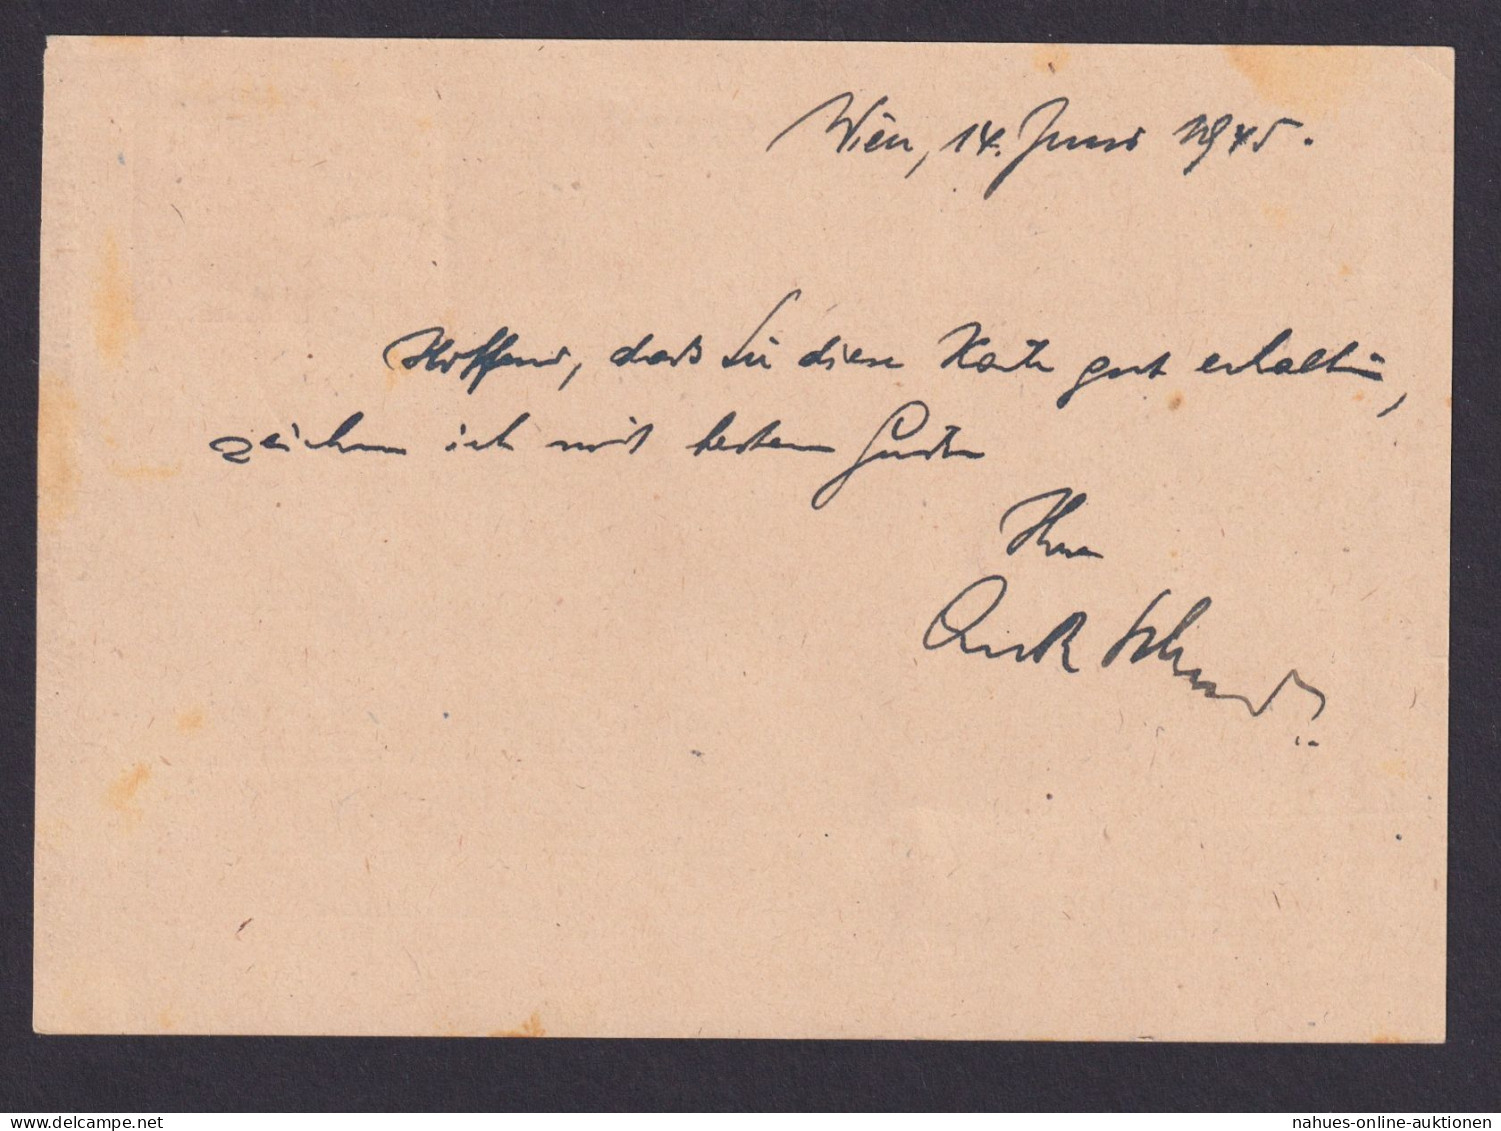 Wien, 14. Juni 1945.
Hoffend, daß Sie diese Karte gut erhalten,
zeichne ich mit besten Grüßen
Ihr
nahues-online-auktionen.com